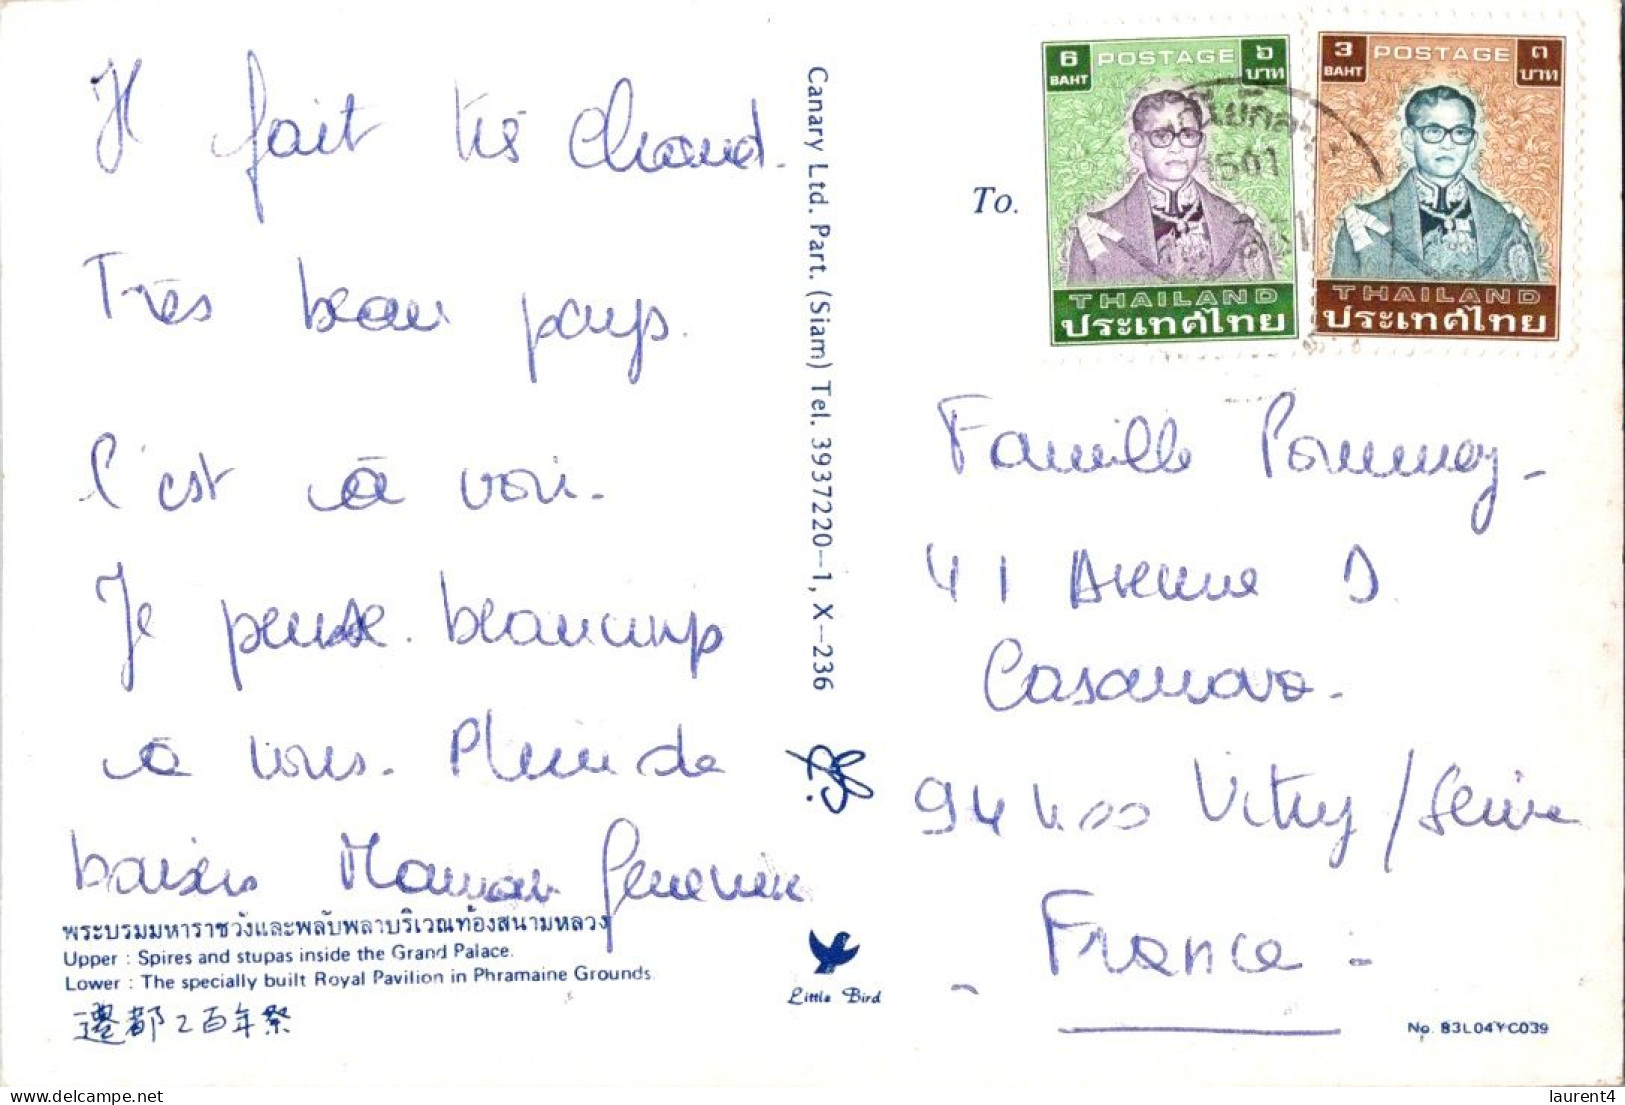 Il fait très chaud.
Très beau pays.
C'est à voir.
Je pense beaucoup
à vous. Plein de
baisers Maman Geneviève
พระบรมมหาราชวังและพลับพลาบริเวณท้องสนามหลวง
Upper : Spires and stupas inside the Grand Palace.
Lower : The specially built Royal Pavilion in Phramaine Grounds.
遷都2百年祭
Canary Ltd. Part. (Siam) Tel. 3937220-1, X-236
Little Bird
To.
6 POSTAGE ๖
BAHT บาท
THAILAND
ประเทศไทย
3 POSTAGE ๓
BAHT บาท
THAILAND
ประเทศไทย
Famille Pommey -
41 Avenue D.
Casanova -
94400 Vitry / Seine
- France -
No. 83L04YC039
laurent4